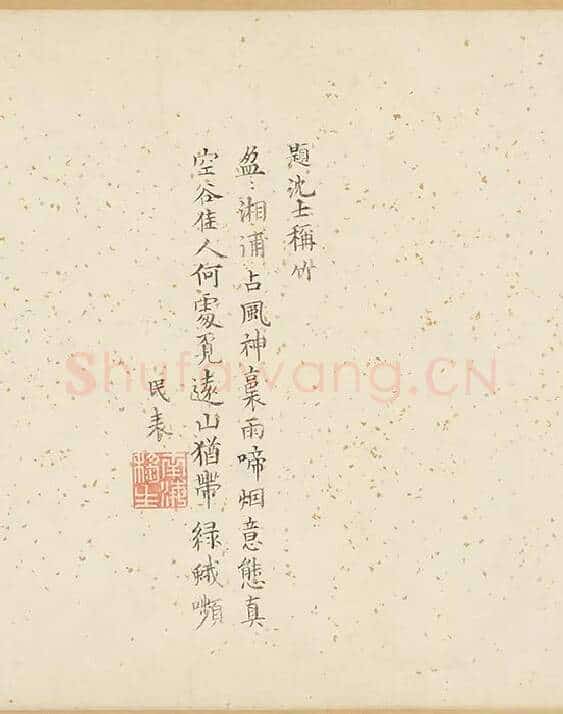 題沈士稱竹
盈〻湘浦占風神裛雨啼烟意態真
空谷佳人何處覓遠山猶帶緑蛾嚬
民表
Shufawang.CN